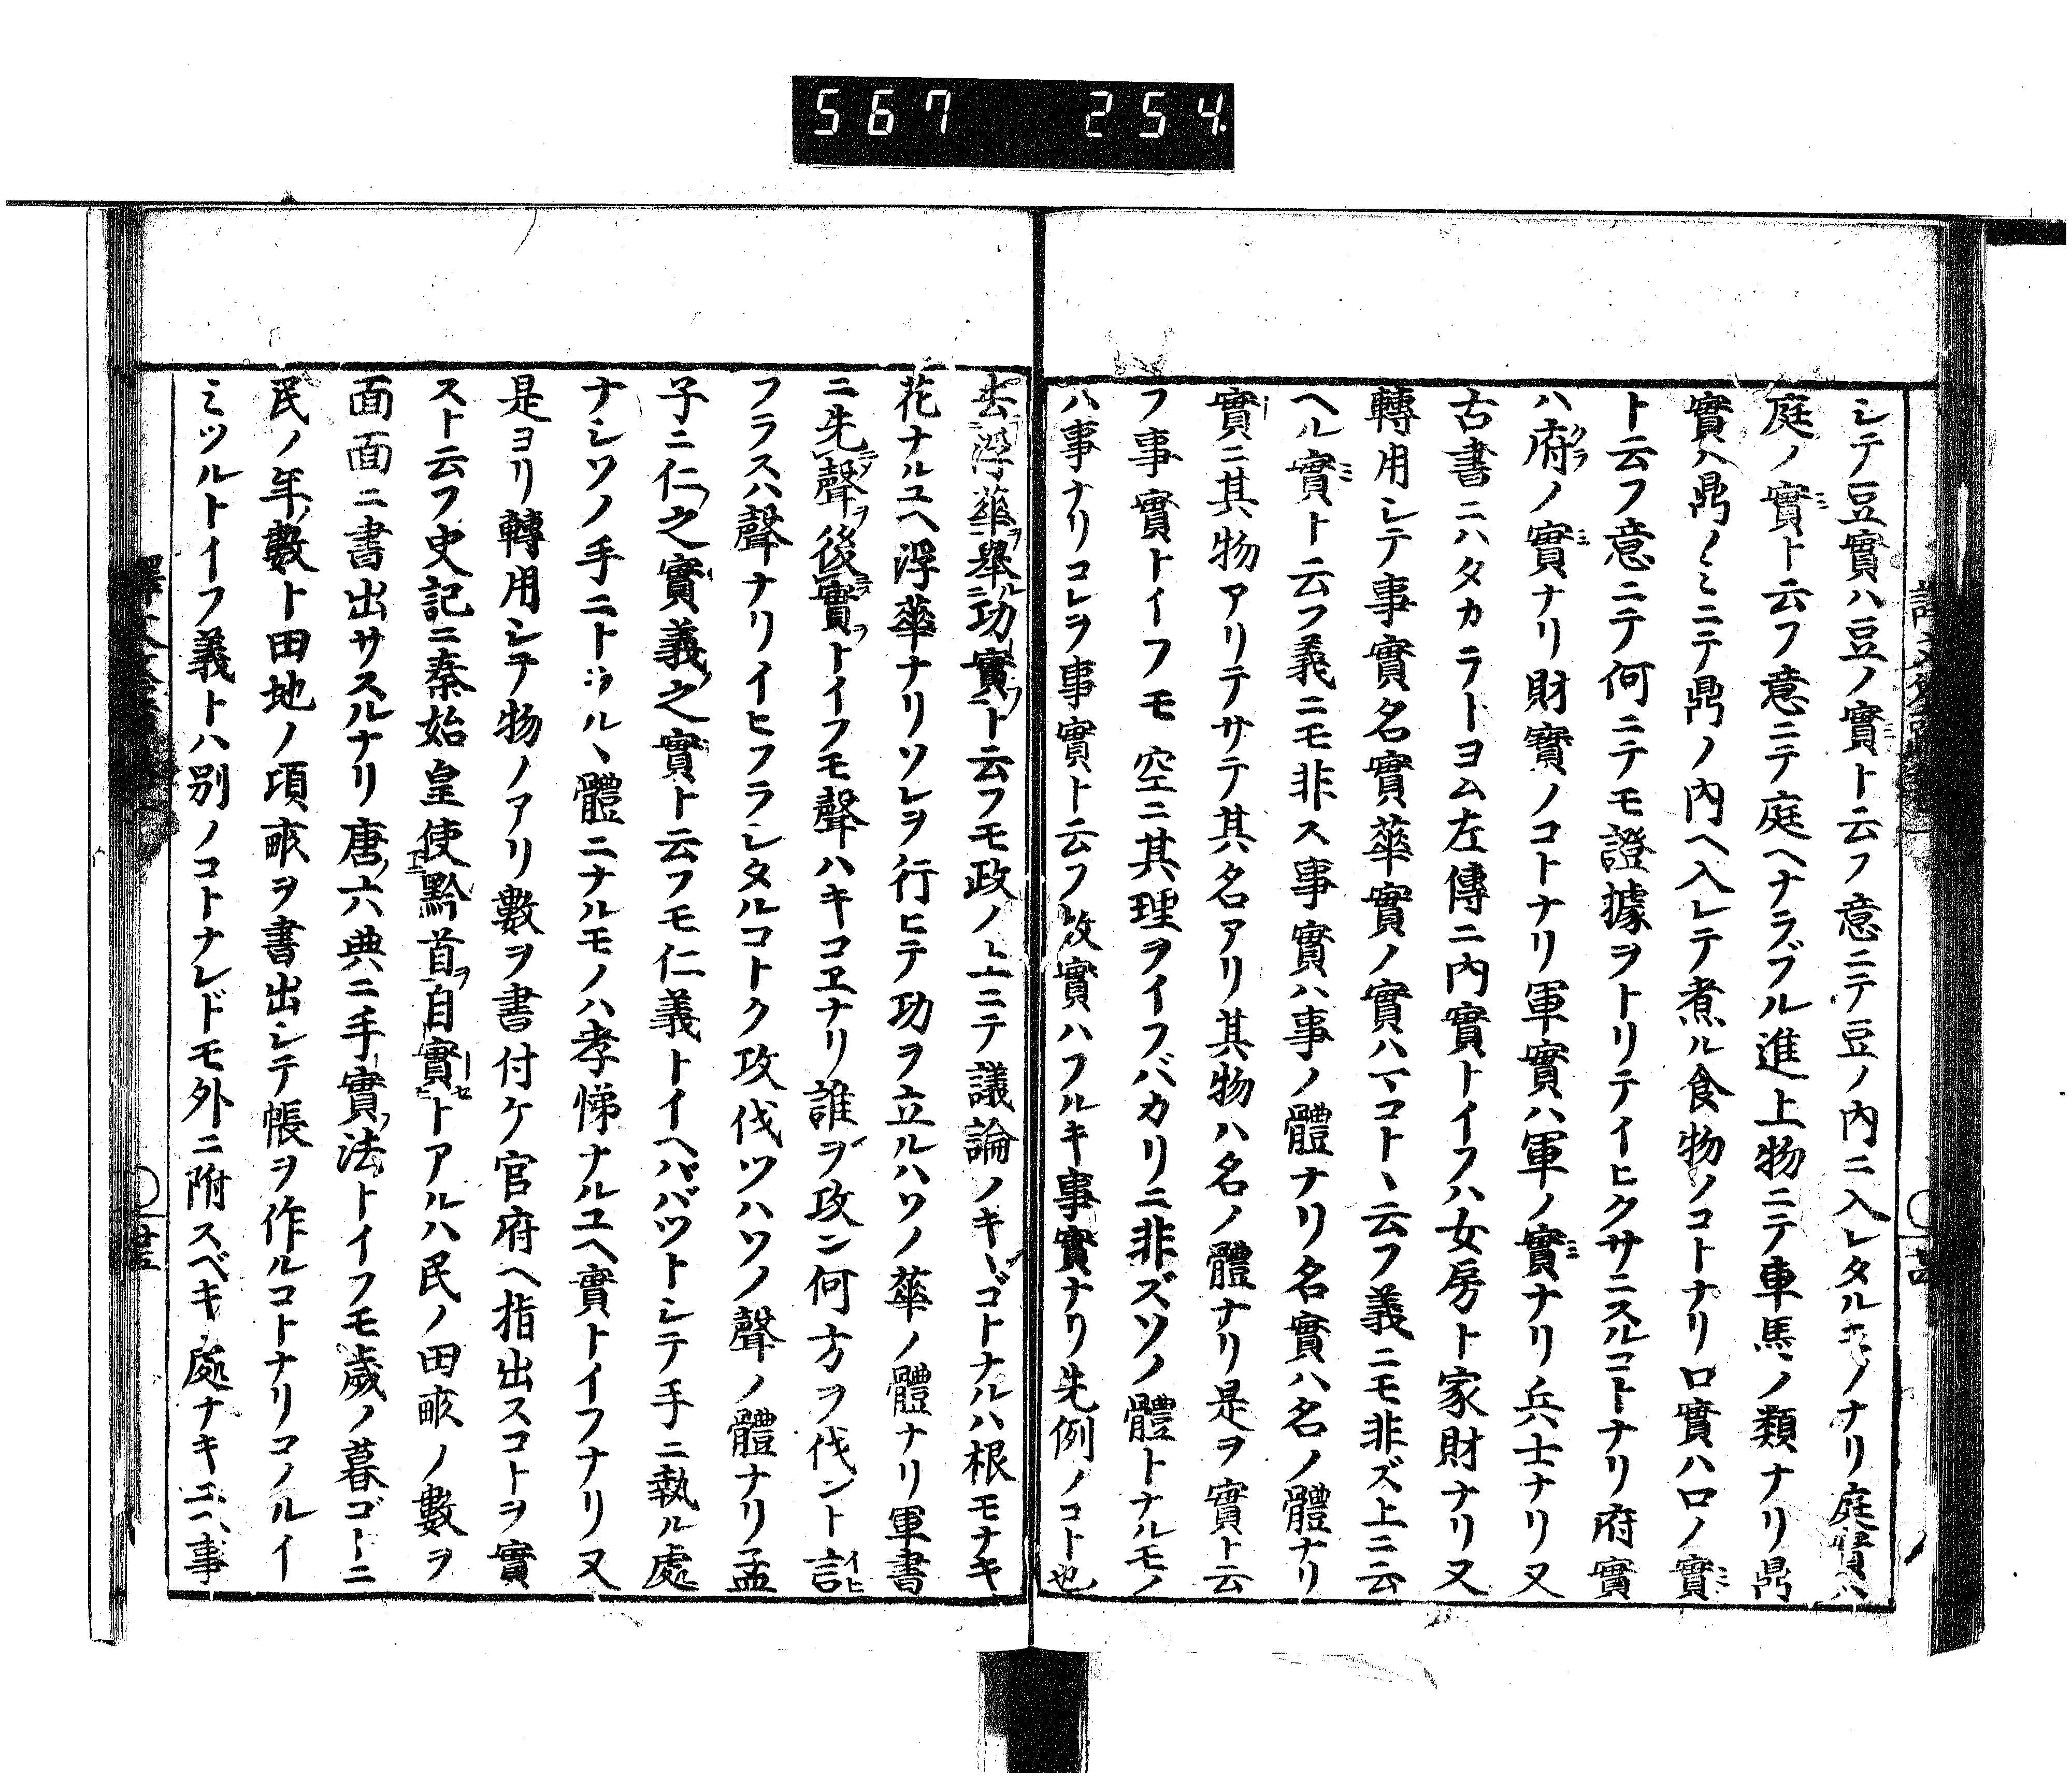 567 254
シテ豆實ハ豆ノ實ト云フ意ニテ豆ノ内ニ入レタルモノナリ庭實ハ
庭ノ實ト云フ意ニテ庭ヘナラブル進上物ニテ車馬ノ類ナリ鼎
實ハ鼎ノミニテ鼎ノ内ヘ入レテ煮ル食物ノコトナリ口實ハ口ノ實
ト云フ意ニテ何ニテモ證據ヲトリテイヒクサニスルコトナリ府實
ハ府ノ實ナリ財寳ノコトナリ軍實ハ軍ノ實ナリ兵士ナリ又
古書ニハタカラトヨム左傳ニ内實トイフハ女房ト家財ナリ又
轉用シテ事實名實華實ノ實ハマコトヽ云フ義ニモ非ズ上ニ云
ヘル實ト云フ義ニモ非ス事實ハ事ノ體ナリ名實ハ名ノ體ナリ
實ニ其物アリテサテ其名アリ其物ハ名ノ體ナリ是ヲ實ト云
フ事實トイフモ空ニ其理ヲイフバカリニ非ズソノ體トナルモノ
ハ事ナリコレヲ事實ト云フ故實ハフルキ事實ナリ先例ノコト也
去浮華舉功實ト云フモ政ノ上ニテ議論ノキヽゴトナルハ根モナキ
花ナルユヘ浮華ナリソレヲ行ヒテ功ヲ立ルハソノ華ノ體ナリ軍書
ニ先聲後實トイフモ聲ハキコヱナリ誰ヲ攻ン何方ヲ伐ント言
フラスハ聲ナリイヒフラシタルコトク攻伐ツハソノ聲ノ體ナリ孟
子ニ仁之實義之實ト云フモ仁義トイヘババツトシテ手ニ執ル處
ナシソノ手ニトラルヽ體ニナルモノハ孝悌ナルユヘ實トイフナリ又
是ヨリ轉用シテ物ノアリ數ヲ書付ケ官府ヘ指出スコトヲ實
スト云フ史記ニ秦始皇使黔首自實トアルハ民ノ田畝ノ數ヲ
面面ニ書出サスルナリ唐六典ニ手實法トイフモ歲ノ暮ゴトニ
民ノ年數ト田地ノ項畝ヲ書出シテ帳ヲ作ルコトナリコノルイ
ミツルトイフ義トハ別ノコトナレドモ外ニ附スベキ處ナキニ事